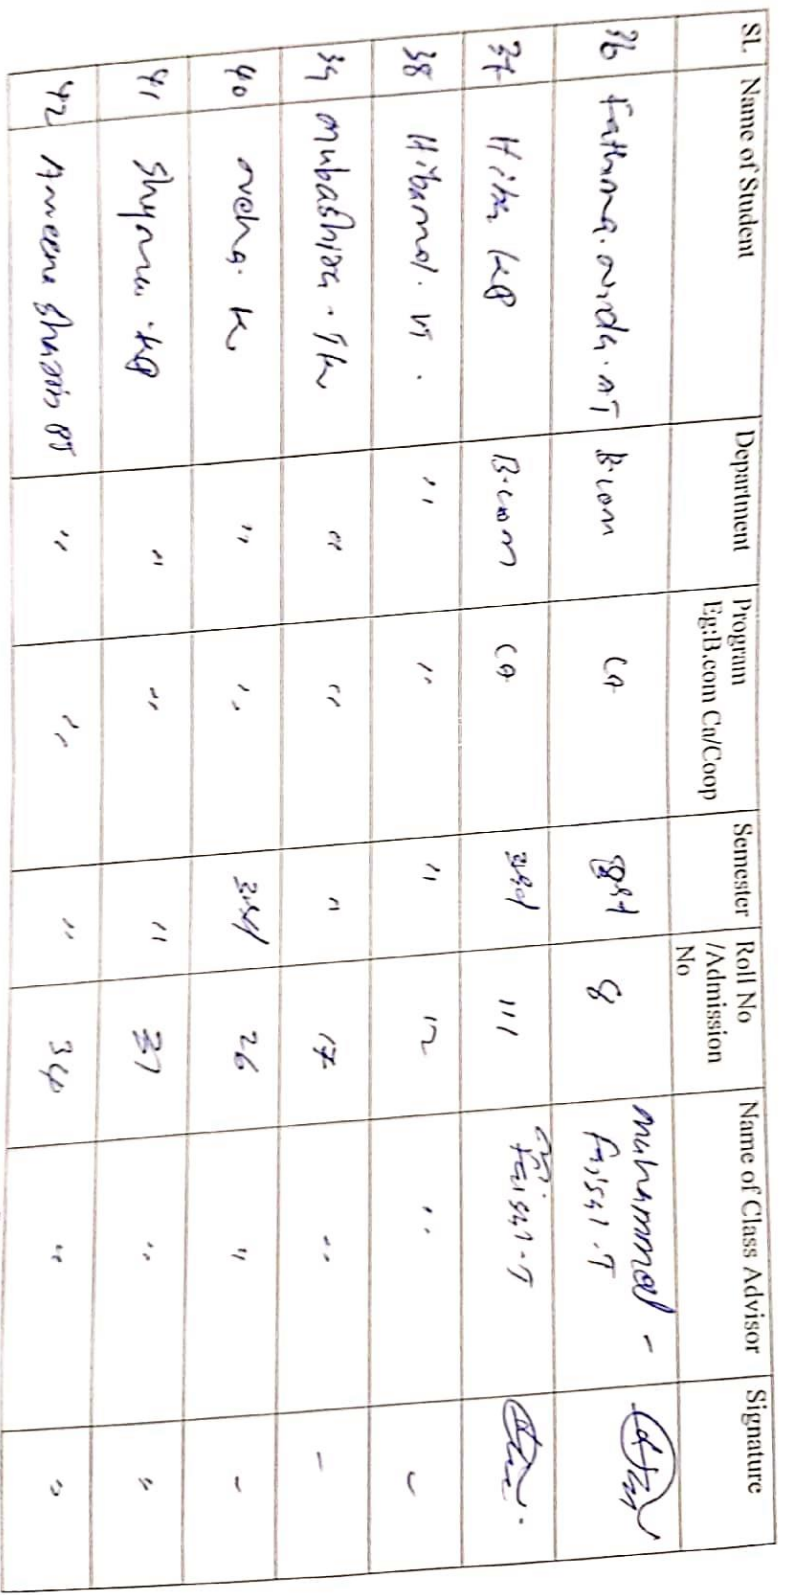 SL Name of Student Department Program Eg:B.com Ca/Coop Semester Roll No /Admission No Name of Class Advisor Signature
36 Fathima. nida. AT B.com CA 8 muhammad - Faisal . T
37 Hiba KP B.com CA 3rd 111 Faisal . T
38 Hibamol. VT . " " " 12 "
39 mubashira . TK " " " 17 " -
40 neha. K " " 3rd 26 " "
41 Shyma . KP " " " 37 " "
42 Ameena " " " 34 " "